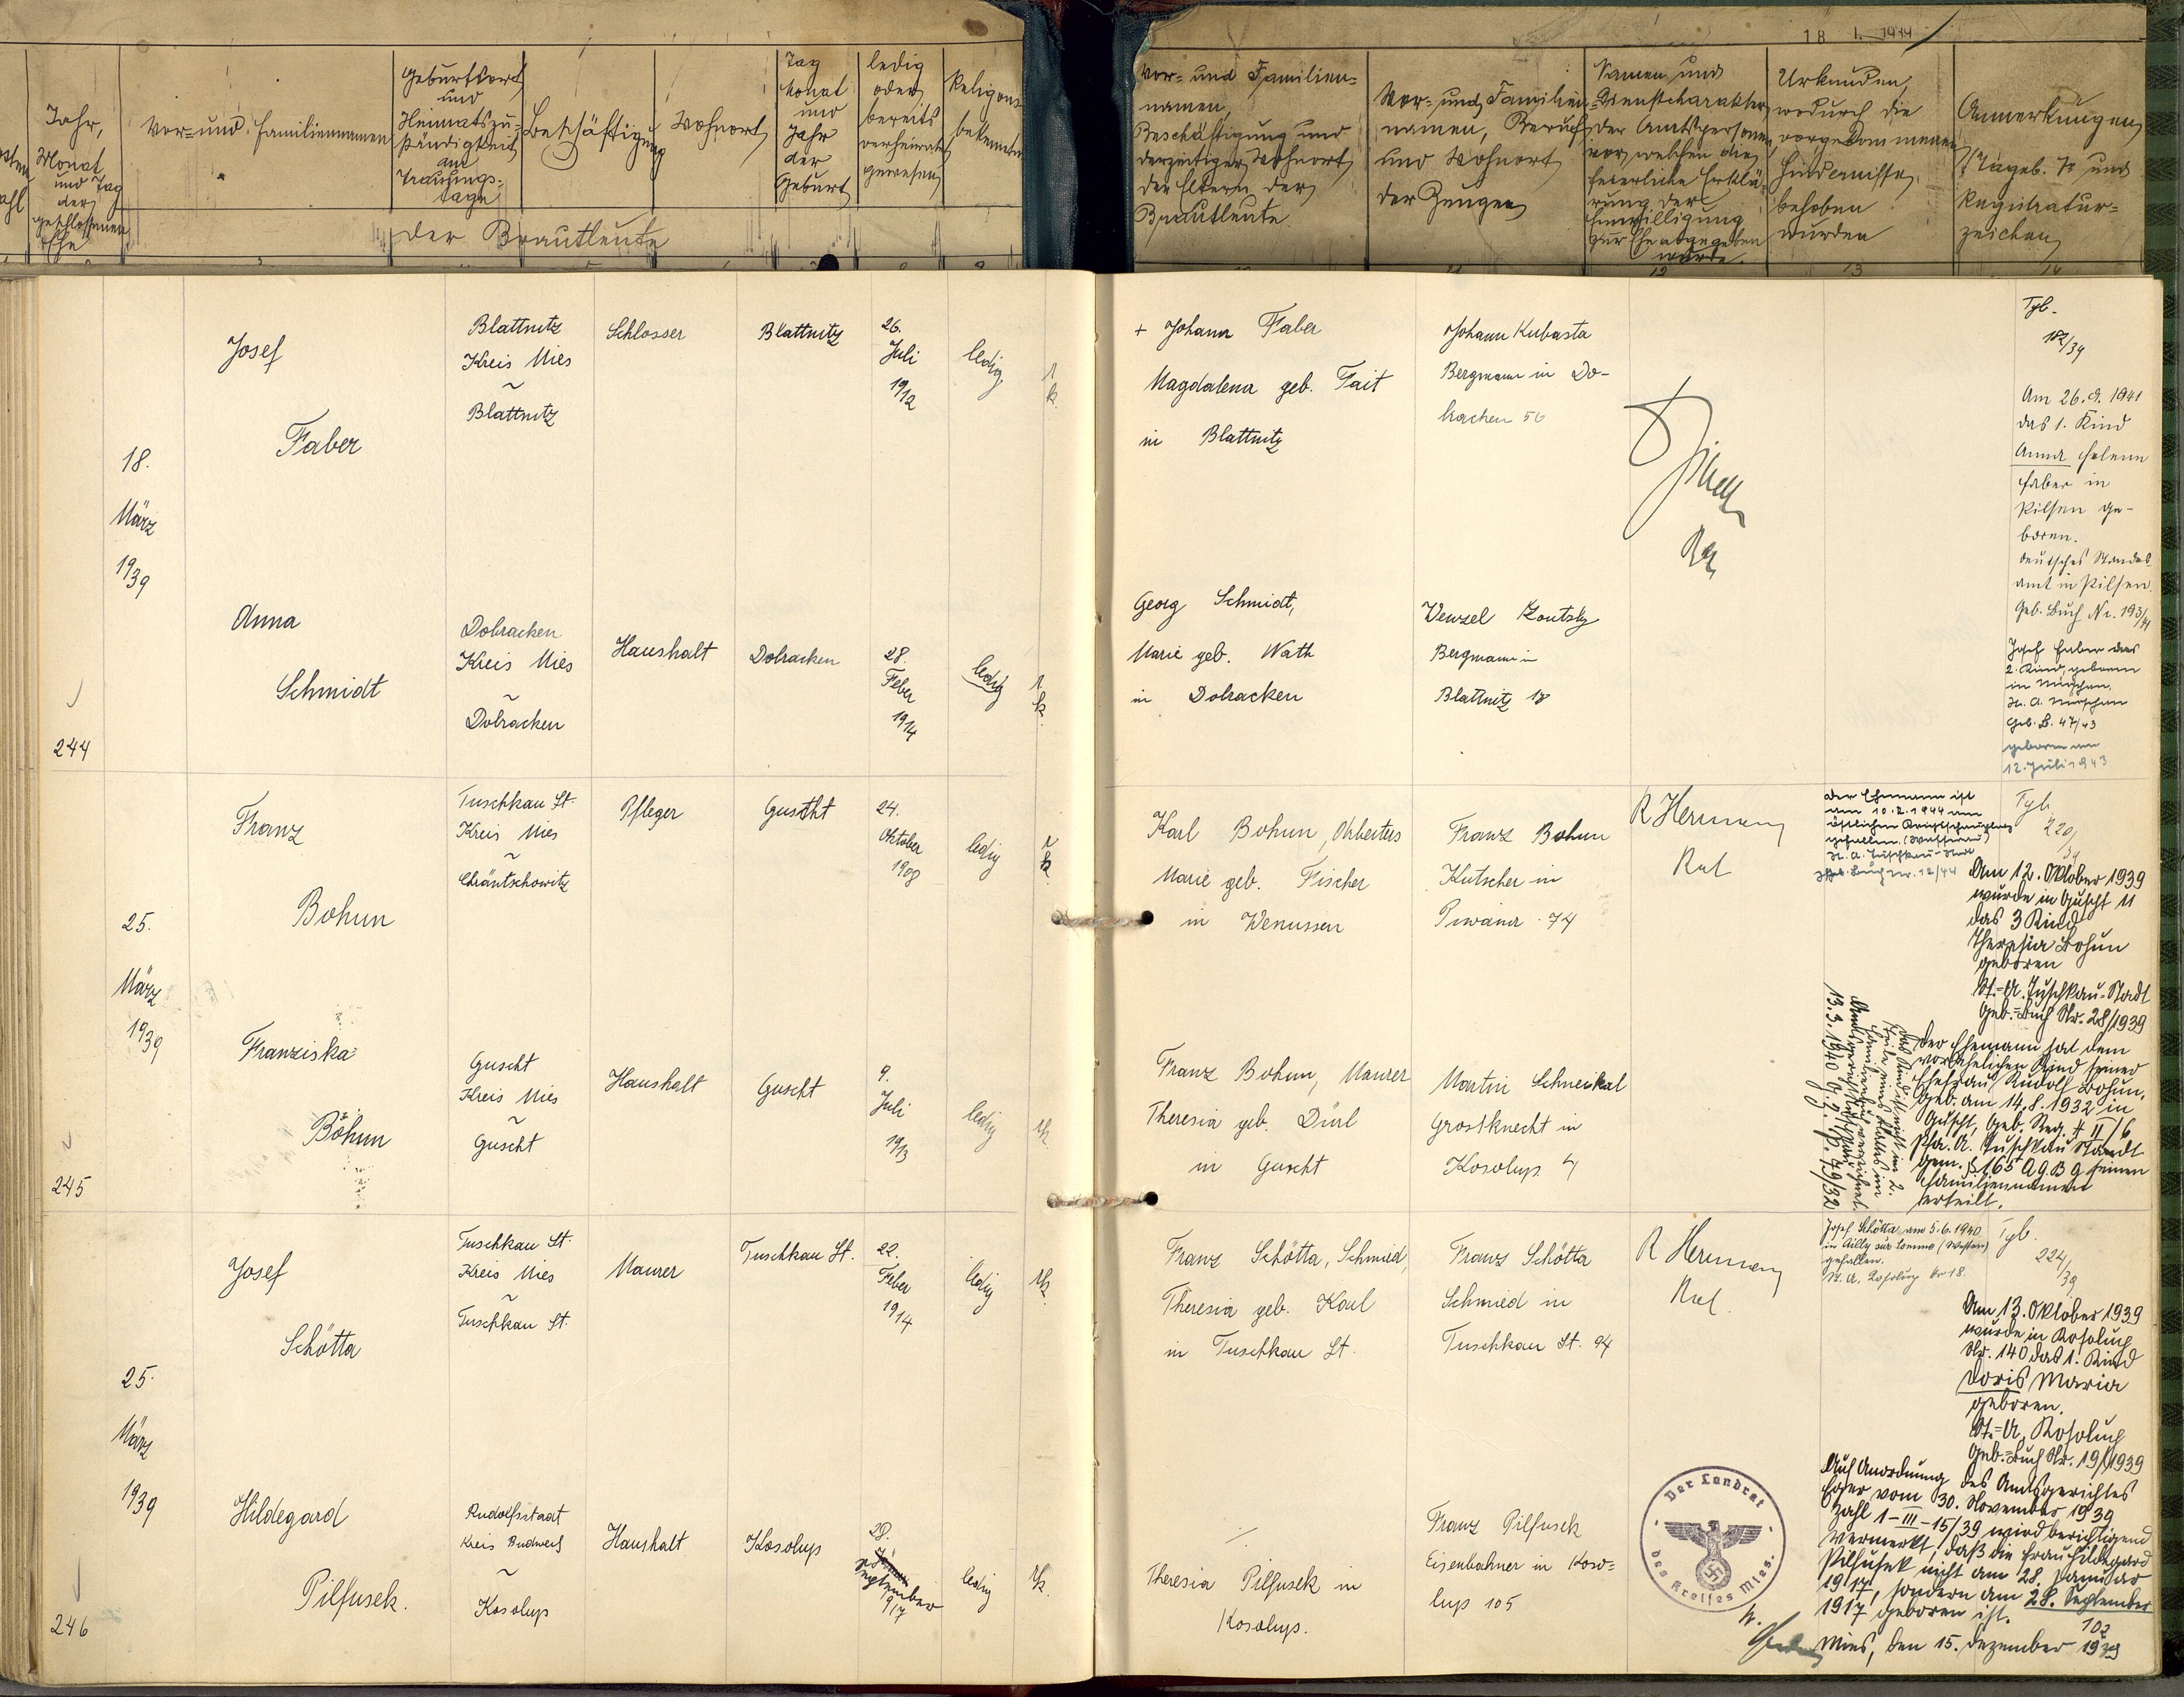 18 1. 1939
Jahr,
Monat
und Tag
der
geschlossenen
Ehe
Vor- und Familiennamen
Geburtsort
und
Heimatszu-
ständigkeit
am
Trauungs-
tage
Beschäftigung
Wohnort
Tag
Monat
und
Jahr
der
Geburt
ledig
oder
bereits
verheiratet
gewesen
Religions-
bekenntnis
der Brautleute
Vor- und Familien-
namen,
Beschäftigung und
derzeitiger Wohnort
der Eltern der
Brautleute
Vor- und Familien-
namen, Beruf
und Wohnort
der Zeugen
Namen und
Dienstcharakter
der Amtspersonen
vor welchen die
feierliche Erklä-
rung der
Einwilligung
zur Ehe abgegeben
wurde.
Urkunden,
wodurch die
vorgekommenen
Hindernisse
behoben
wurden
Anmerkungen
(Tageb. Nr und
Registratur-
zeichen
12
13
14
244
18.
März
1939
Josef
Faber
Blattnitz
Kreis Mies
~
Blattnitz
Schlosser
Blattnitz
26.
Juli
1912
ledig
r
k.
+ Johann Faber
Magdalena geb. Tait
in Blattnitz
Johann Kubasta
Bergmann in Do-
bracken 56
Tgb.
182/39
Am 26.9.1941
das 1. Kind
Anna Helene
Faber in
Pilsen ge-
boren.
Deutsches Standes-
amt in Pilsen
Geb. Buch Nr. 193/41
Josef Faber das
2. Kind, geboren
in Nürschan,
St. A. Nürschan
Geb. B. 47/43
geboren am
12. Juli 1943
Anna
Schmidt
Dobracken
Kreis Mies
~
Dobracken
Haushalt
Dobracken
28.
Feber
1914
ledig
r
k.
Georg Schmidt,
Marie geb. Wath
in Dobracken
Wenzel Koutsky
Bergmann in
Blattnitz 18
245
25.
März
1939
Franz
Bohun
Tuschkau St.
Kreis Mies
~
Chräntschowitz
Pfleger
Guscht
24.
Oktober
1908
ledig
r
k.
Karl Bohun, Arbeiters
Marie geb. Fischer
in Wenussen
Franz Bohun
Kutscher in
Piwana 74
R Hermann
Rat
Der Ehemann ist
am 10.2.1944 am
östlichen Kriegsschauplatz
gefallen.
St. A. Tuschkau-Stadt
Buch Nr. 12/44
Tgb.
220/
39
Am 12. Oktober 1939
wurde in Guscht 11
das 3 Kind
Theresia Bohun
geboren
St.=A. Tuschkau-Stadt
Geb.=Buch Nr. 28/1939
Der Ehemann hat dem
vorehelichen Kind seiner
Ehefrau Rudolf Bohun,
geb. am 14.8.1932 in
Guscht, Geb. Reg. # II/6
Pfa. A. Tuschkau Stadt
gem. § 165 A G B G seinen
Familiennamen
erteilt.
13.3.1940
Franziska
Böhun
Guscht
Kreis Mies
~
Guscht
Haushalt
Guscht
9.
Juli
1913
ledig
rk.
Franz Bohun, Maurer
Theresia geb. Dürl
in Guscht
Martin Schneikal
Grostknecht in
Kosolup 4
246
25.
März
1939
Josef
Schötta
Tuschkau St.
Kreis Mies
~
Tuschkau St.
Maurer
Tuschkau St.
22.
Feber
1914
ledig
rk.
Franz Schötta, Schmied,
Theresia geb. Karl
in Tuschkau St.
Franz Schötta
Schmied in
Tuschkau St. 94
R Hermann
Rat.
Josef Schötta am 5.6.1940
in Ailly sur Somme (Westen)
gefallen.
St. A. Kosolup Nr 18.
Tgb.
224/
39
Am 13. Oktober 1939
wurde in Kosolup
Nr. 140 das 1. Kind
Doris Maria
geboren.
St.=A. Kosolup
Geb.=Buch Nr. 19/1939
Hildegard
Pilfusek.
Rudolfstadt
Kreis Budweis
~
Kosolup
Haushalt
Kosolup
28.
September
1917
ledig
rk.
Theresia Pilfusek in
Kosolup.
Franz Pilfusek
Eisenbahner in Koso-
lup 105
Der Landrat
des Kreises Mies.
Auf Anordnung des Amtsgerichtes
Eger vom 30. November 1939
Zahl 1-III-15/39 wird berichtigend
vermerkt, daß die Frau Hildegard
Pilfusek nicht am 28. Januar
1917, sondern am 28. September
1917 geboren ist.
Mies, den 15. Dezember 1939
102